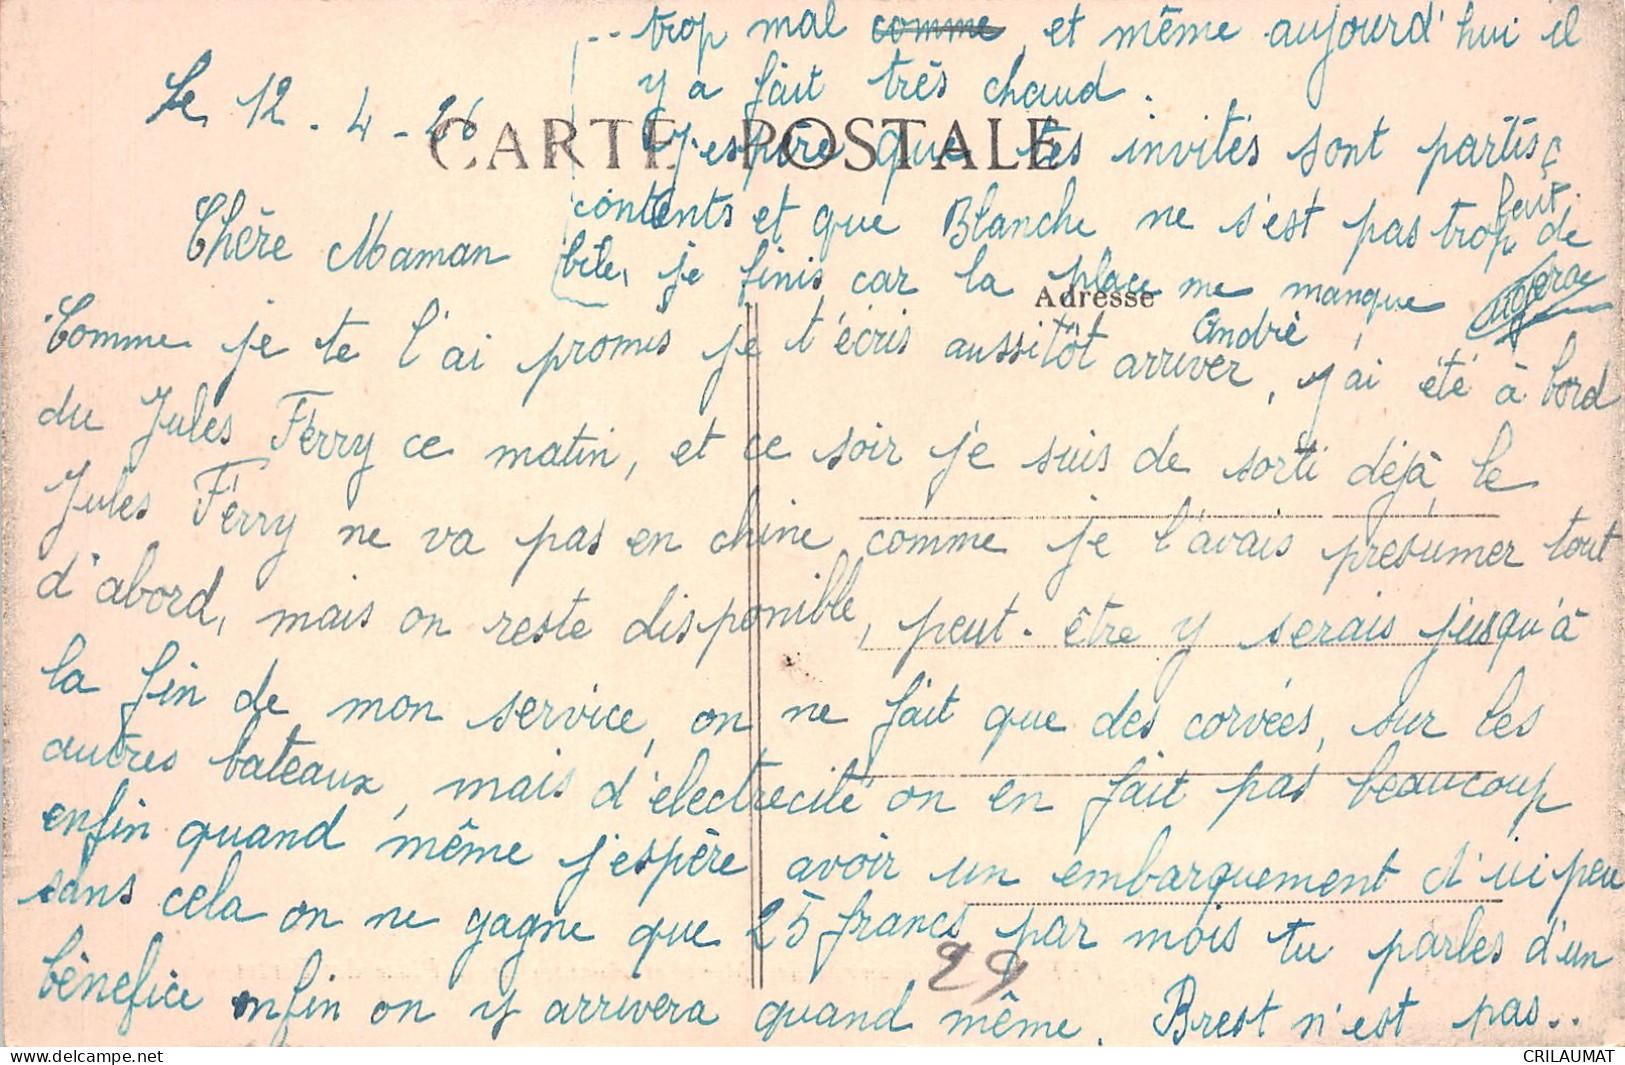 -- trop mal comme, et même aujourd'hui il
y a fait très chaud.
Le 12-4-26
CARTE POSTALE
J'espère que tes invités sont partis
contents et que Blanche ne s'est pas trop fait de
bile, je finis car la place me manque
Adresse
André
Chère Maman
Comme je te l'ai promis je t'écris aussitôt arriver, j'ai été à bord
du Jules Ferry ce matin, et ce soir je suis de sorti déjà, le
Jules Ferry ne va pas en chine comme je l'avais presumer tout
d'abord, mais on reste disponible, peut-être y serais jusqu'à
la fin de mon service, on ne fait que des corvées, sur les
autres bateaux, mais d'électrecité on en fait pas beaucoup
enfin quand même j'espère avoir un embarquement d'ici peu
sans cela on ne gagne que 25 francs par mois tu parles d'un
bénefice enfin on y arrivera quand même. Brest n'est pas..
29
CRILAUMAT